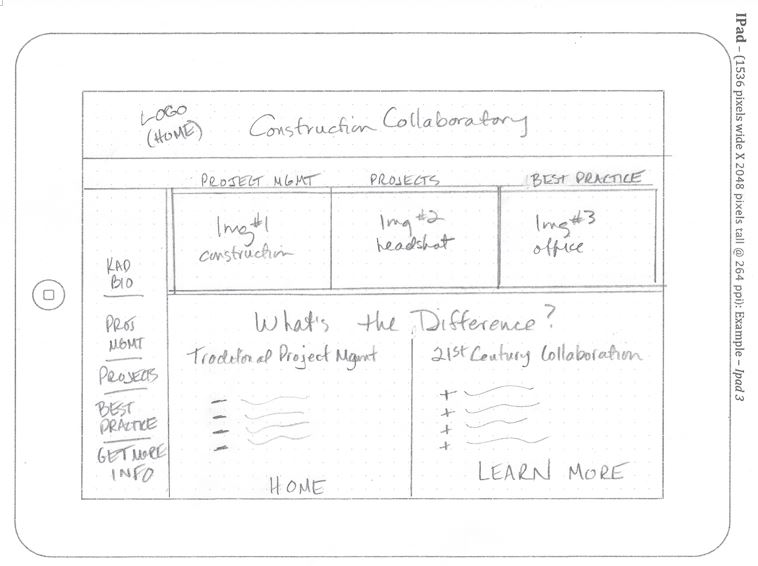 IPad – (1536 pixels wide X 2048 pixels tall @ 264 ppi): Example – Ipad 3
LOGO
(HOME)
Construction Collaboratory
PROJECT MGMT PROJECTS BEST PRACTICE
Img #1
construction
Img #2
headshot
Img #3
office
KAD
BIO
PROJ
MGMT
PROJECTS
BEST
PRACTICE
GET MORE
INFO
What's the Difference?
Traditional Project Mgmt
21st Century Collaboration
HOME
LEARN MORE